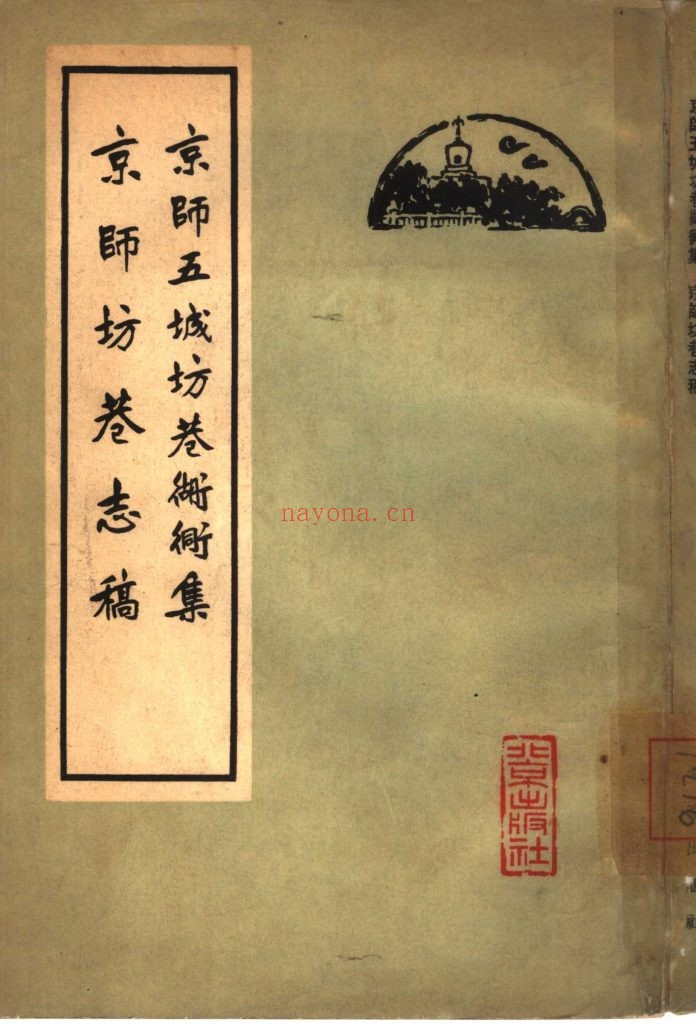 京師五城坊巷衚衕集
京師坊巷志稿
nayona.cn
北京出版社